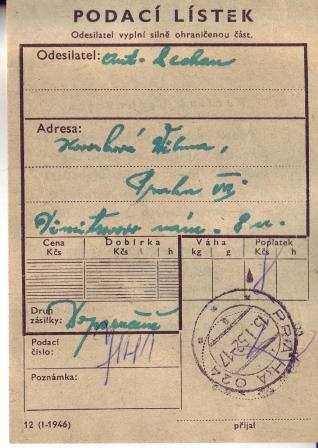 PODACÍ LÍSTEK
Odesílatel vyplní silně ohraničenou část.
Odesílatel: Ant. Lechan
Adresa:
Vilma,
Praha VII
Dimitrovo nám. 8 n.
Cena Kčs Dobírka Kčs h Váha kg g Poplatek Kčs h
Druh zásilky: Doporučeně
Podací číslo: 7141
Poznámka:
PRAHA 024
15.I.52-17
12 (I-1946) přijal